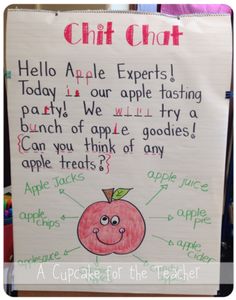 Chit Chat
Hello Apple Experts!
Today is our apple tasting
party! We will try a
bunch of apple goodies!
{Can you think of any
apple treats?}
Apple Jacks
apple juice
apple chips
apple pie
applesauce
apple cider
A Cupcake for the Teacher